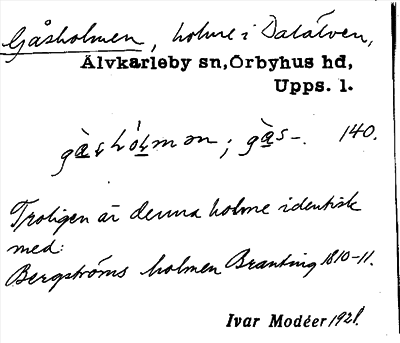 Gåsholmen, holme i Dalälven,
Älvkarleby sn, Örbyhus hd,
Upps. l.
gàshól̥mən; gàs-. 140.
Troligen är denna holme identisk
med:
Bergströms holmen Branting 1810-11.
Ivar Modéer 1921.